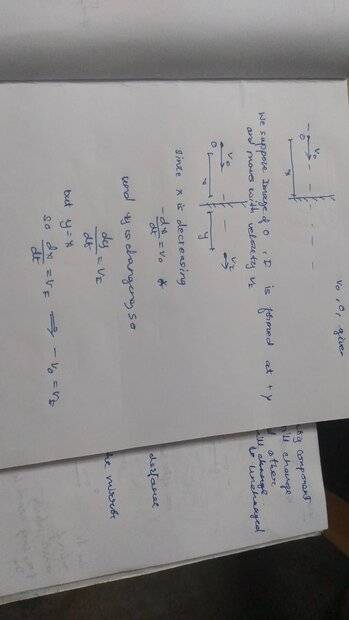 v₀, O, given
O
v₀
x
We suppose Image of O, I is formed at +y
and moves with velocity v_I
O
v₀
x
y
v_I
since x is decreasing
-dx/dt = v₀
and y is changing so
dy/dt = v_I
but y = x
so dx/dt = v_I ⟹ -v₀ = v_I
component
change
other
change
unchanged
distance
mirror